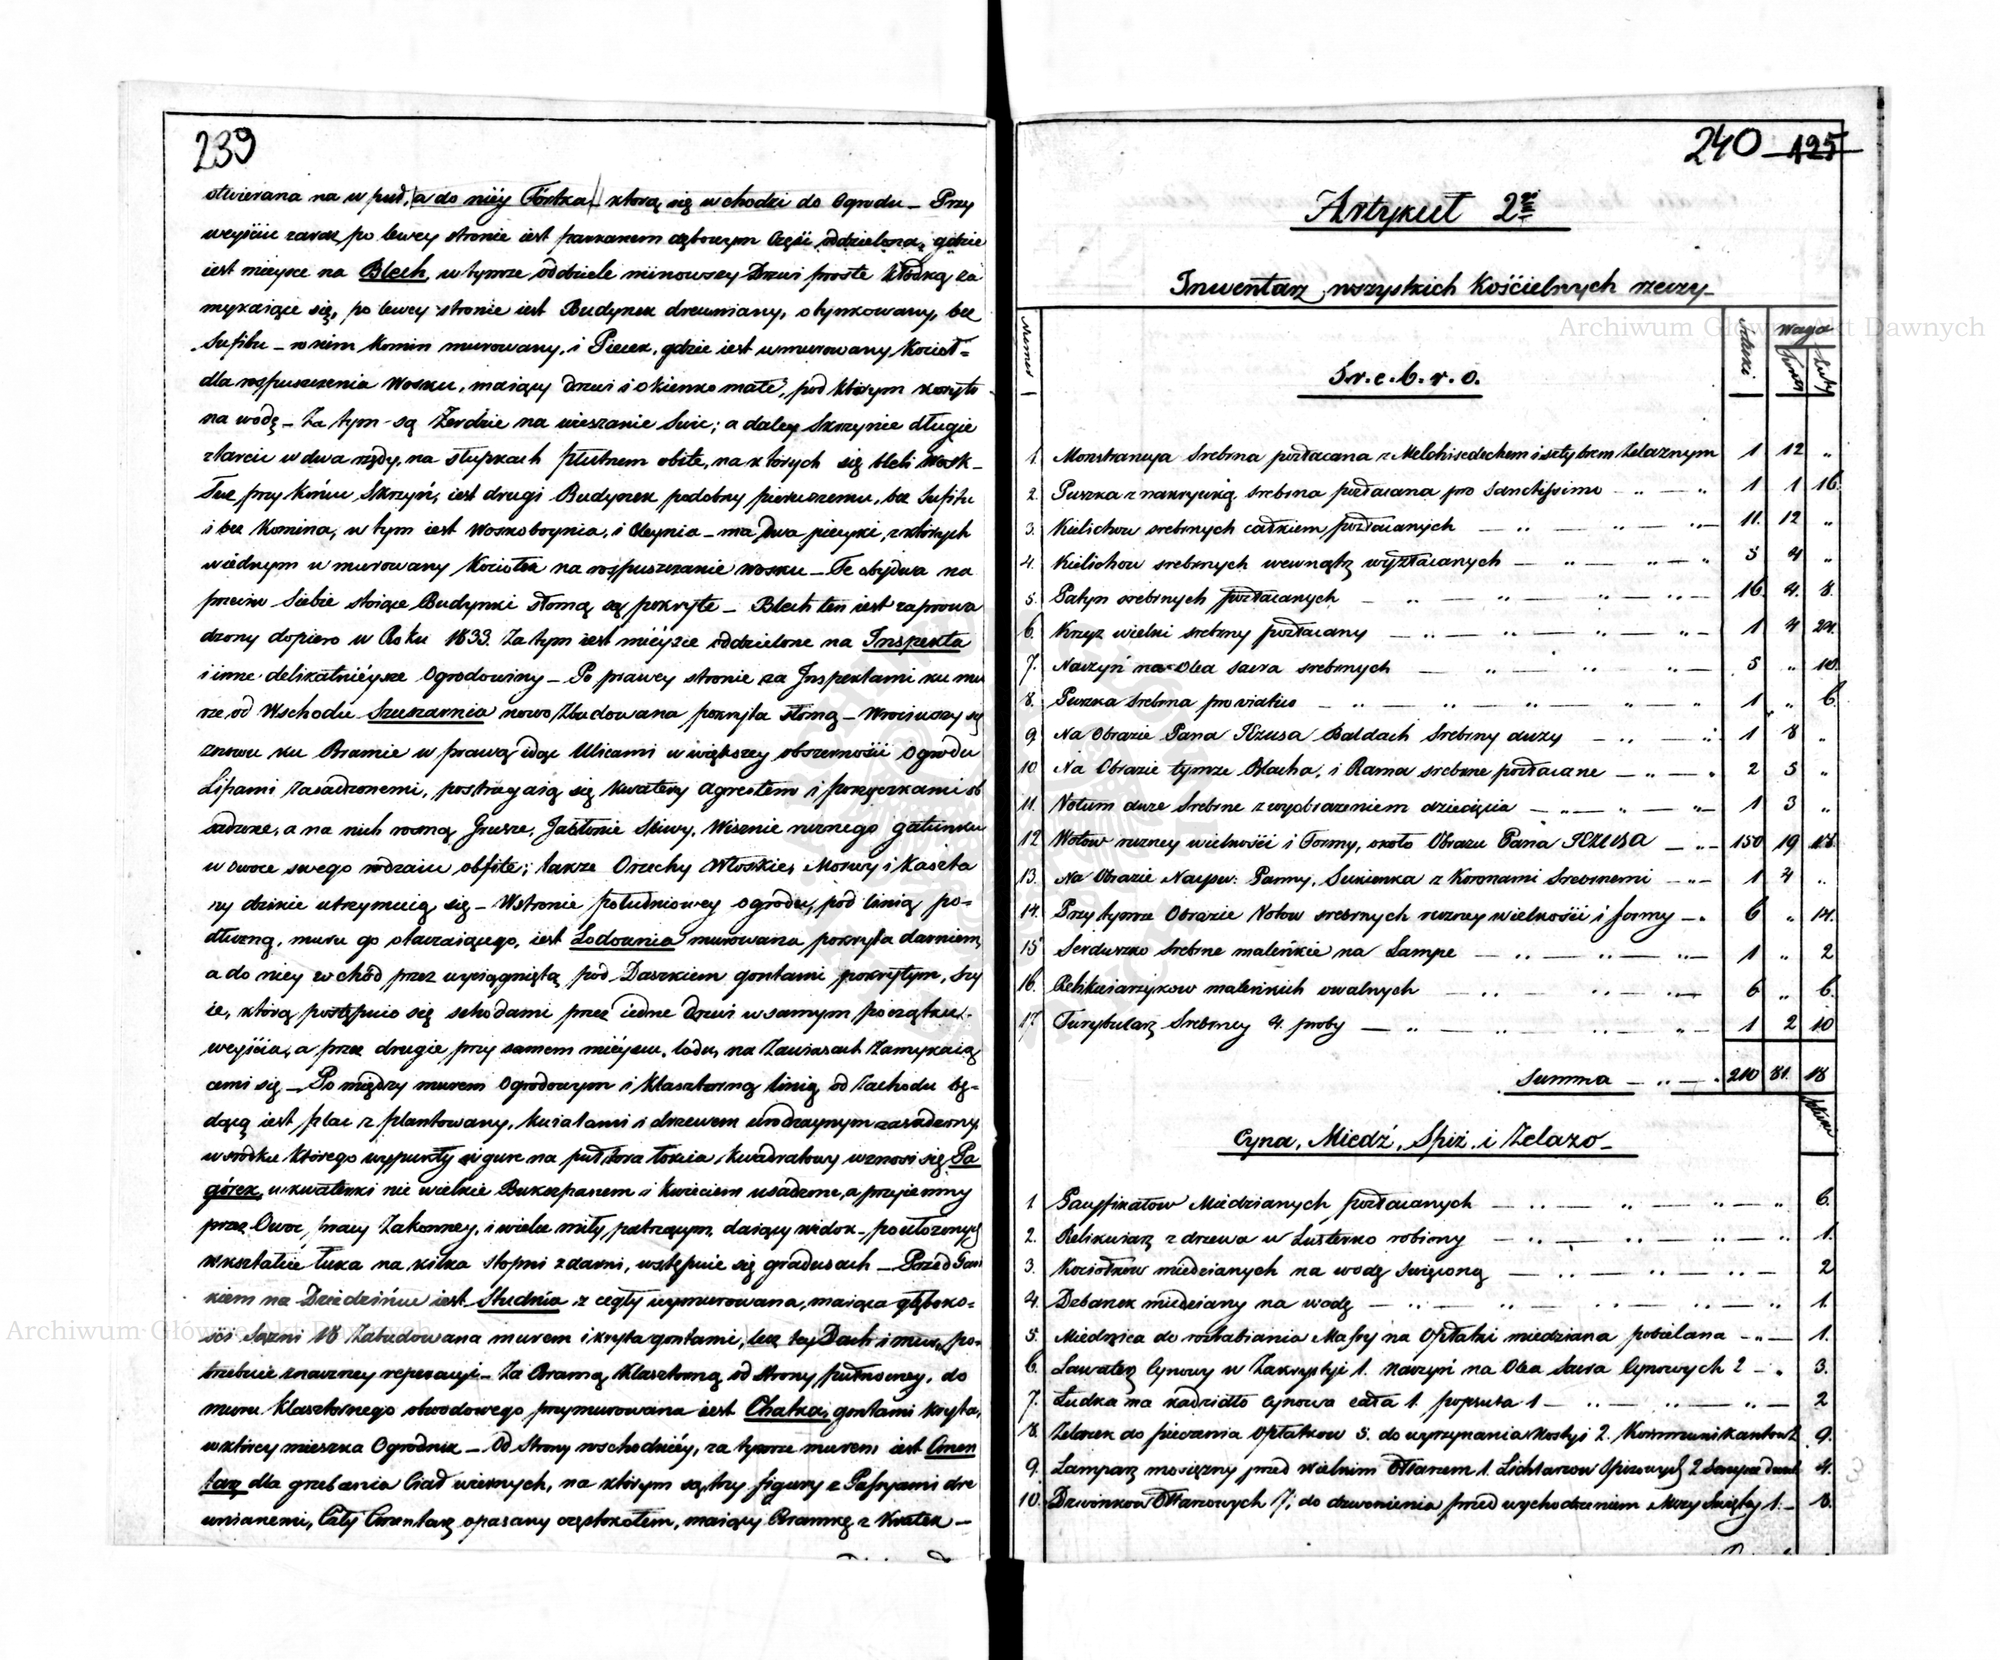 239
otwierana na w puł, a do niéy Fórtka, którą się wchodzi do Ogrodu – Przy
weyściu zaraz po lewey stronie iest parkanem dębowym Część oddzielona, gdzie
iest mieysce na Blech, w tymże oddziele minowszy Drzwi proste kłodką za
mykaiące się, po lewey stronie iest Budynek drewniany, otynkowany, bez
Sufitu – w nim Komin murowany, i Piecek, gdzie iest wmurowany Kocieł –
dla rospuszczenia Wosku, maiący drzwi i okienko małe, pod którym koryto
na wodę – Za tym są Żerdzie na wieszanie Swic; a daley Skrzynie długie
z tarcic w dwa rzędy, na słupkach płutnem obite, na których się bieli Wosk –
Też przy końcu Skrzyń, iest drugi Budynek podobny pierwszemu, bez Sufitu
i bez Komina, w tym iest Woskoboynia, i Oleynia – ma dwa piecyki, z których
w iednym w murowany Kociołek na rospuszczanie wosku – Te obydwa na
przeciw Siebie stoiące Budynki słomą są pokryte – Blech ten iest zaprowa
dzony dopiero w Roku 1833. Za tym iest miéysce oddzielone na Inspekta
i inne delikatniéysze Ogrodowiny – Po prawey stronie za Inspektami ku mu
rze, od Wschodu Szuszarnia nowo Zbudowana pokryta słomą – Wrociwszy się
znowu ku Bramie w prawą idąc Ulicami w większey obszerności Ogrodu
Lipami zasadzonemi, postrzegaią się kwatery Agrestem i porzyczkami ob
sadzone, a na nich rosną Grusze, Jabłonie Sliwy, Wisznie roznego gatunku
w owoce swego rodzaiu obfite; takze Orzechy Włoskie, Morwy i Kaszta
ny dzikie utrzymuią się – W stronie południowey ogrodu, pod linią po-
dłuzną, muru go otaczaiącego, iest Lodownia murowana pokryta darniem,
a do niey wchód przez wyciągniętą pod Daszkiem gontami pokrytym, Szy
ie, którą postępuie się schodami przez iedne drzwi w samym początku
weyścia, a przez drugie przy samem miéyscu lodu, na Zawiasach Zamykaią
cemi się – Po między murem Ogrodowym i Klasztorną linią od Zachodu bę-
dącą iest plac z plantowany, kwiatami i drzewem urodzaynym zasadzony
w srodku którego wypukły w gurę na pułtora łokcia kwadratowy wznosi się Pa
górek, w kwaterki nie wielkie Bukszpanem i kwieciem usadzone, a przyiemny
przez Owoc, pracy Zakonney, i wielce miły patrzącym, daiący widok – po ułozonych
w kształcie łuka na kilka stopni z darni, wstępuie się gradusach – Przed Gan
kiem na Dziedzińcu iest Studnia z cegły wymurowana, maiąca głęboko-
ści Sązni 18 Zabudowana murem i kryta gontami, lecz tey Dach i mur, po-
trzebuie znaczney reperacyi – Za Bramą Klasztorną od Strony pułnocney, do
muru Klasztornego obwodowego przymurowana iest Chatka, gontami kryta,
w któréy mieszka Ogrodnik – Od Strony wschodniéy, za tymże murem iest Cmen
tarz dla grzebania Ciał wiernych, na którym są trzy figury z Passyami dre
wnianemi, Cały Cmentarz opasany częstokołem, maiący Bramkę z Kratek –
240 125
Artykuł 2gi
Inwentarz wszystkich Kościelnych rzeczy
Numer Sztuki Waga
Łuty
S.r.e.b.r.o.
1. Monstrancya Srebrna pozłacana z Melchisedechem i sztybrem Zelaznym 1 12 „
2. Puszka z nakrywką srebrna pozłacana pro Sanctissimo 1 1 16.
3. Kielichow srebrnych całkiem pozłacanych 11. 12 „
4. Kielichow srebrnych wewnątrz wyzłacanych 5 4 „
5. Patyn srebrnych pozłacanych 16. 4. 8.
6. Krzyz wielki srebrny pozłacany 1 4 24.
7. Naczyń na Olea Sacra srebrnych 5 „ 10.
8. Puszka Srebrna pro viatico 1 „ 6.
9. Na Obrazie Pana JEzusa Baldach Srebrny duzy 1 8 „
10. Na Obrazie tymze Blacha, i Rama srebrne pozłacane 2 5 „
11. Votum duze Srebrne z wyobrazeniem dziecięcia 1 3 „
12. Wotow rozney wielkości i Formy, około Obrazu Pana JEZUSA 150 19 18.
13. Na Obrazie Nayśw: Panny, Sukienka z Koronami Srebrnemi 1 4 „
14. Przy tymze Obrazie Votow srebrnych rozney wielkości i formy 6 „ 14.
15. Serduszko Srebrne maleńkie na Lampe 1 „ 2
16. Relikwiarzykow maleńkich owalnych 6 „ 6.
17. Turybularz Srebrney 4. proby 1 2 10
Summa 210 81. 18
Cyna, Miedź, Spiż i Żelazo
1. Pacyfikałow Miedzianych pozłacanych 6.
2. Relikwiarz z drzewa w Lusterko robiony 1.
3. Kociołków miedzianych na wodę swięconą 2
4. Dzbanek miedziany na wodę 1.
5. Miednica do roztabiania Massy na Opłatki miedziana pobielana 1.
6. Lawaterz Cynowy w Zakrystyi 1. Naczyń na Olea Sacra Cynowych 2 3.
7. Łudka na kadzidło cynowa cała 1. popsuta 1 2
8. Zelazek do pieczenia Opłatkow 5. do wyrzynania Hostyi 2. Kommunikantow 2 9.
9. Lamparz mosięzny przed Wielkim Ołtarzem 1. Lichtarzow Spizowych 2 4.
10. Dzwonkow Ołtarzowych 7; do dzwonienia przed wychodzeniem Mszy Swiętey 1. 8.
Archiwum Główne Akt Dawnych
Archiwum Główne Akt Dawnych